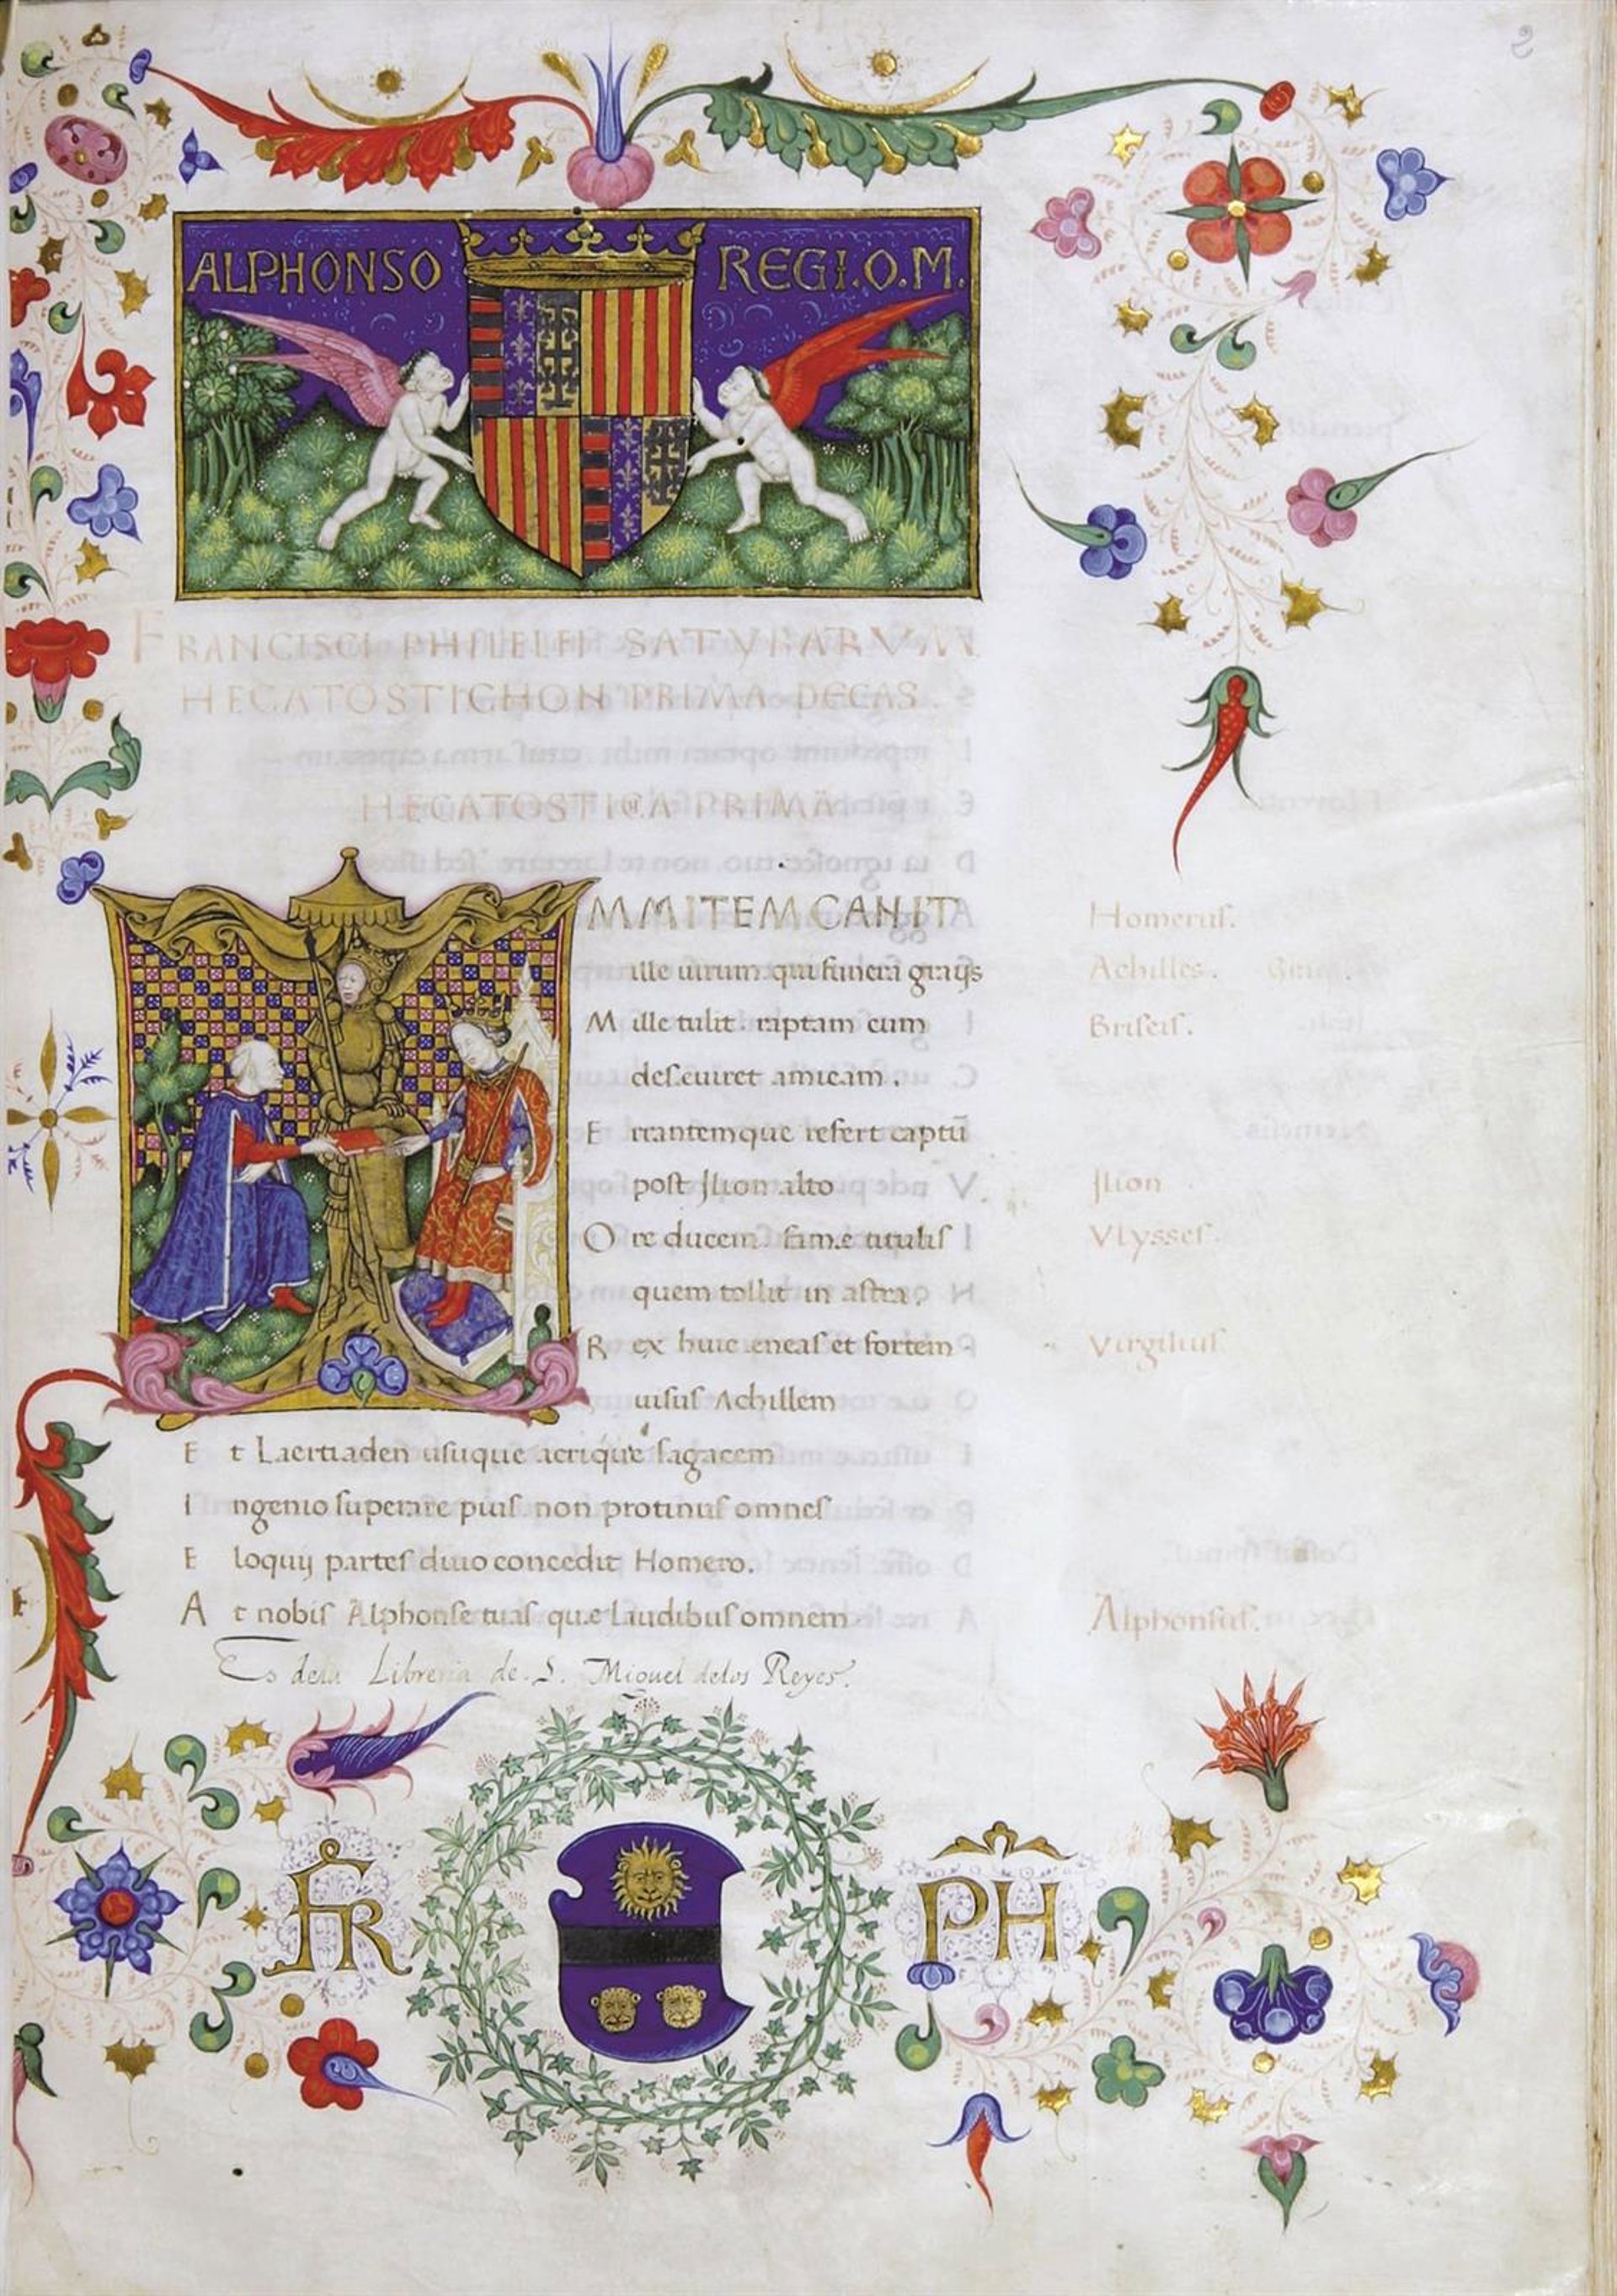 ALPHONSO REGI.O.M.
FRANCISCI PHILELFI SATYRARVM
HECATOSTICHON PRIMA DECAS.
HECATOSTICA PRIMA
MMITEM CANIT
ille uirum qui funera graijs
Mille tulit. raptam cum
deseuiret amicam.
Errantemque refert captū
post Jlion alto
Ore ducem. famæ titulis
quem tollit in astra.
Rex huic æneas et fortem
uisus Achillem
Et Laertiaden usuque acrique sagacem
Ingenio superare pius non protinus omnes
Eloquij partes diuo concedit Homero.
At nobis Alphonse tuas quæ laudibus omnem
Homerus.
Achilles.
Briseis.
Jlion
Vlysses.
Virgilius.
Alphonsus.
Es dela Libreria de S. Miguel delos Reyes.
FR PH